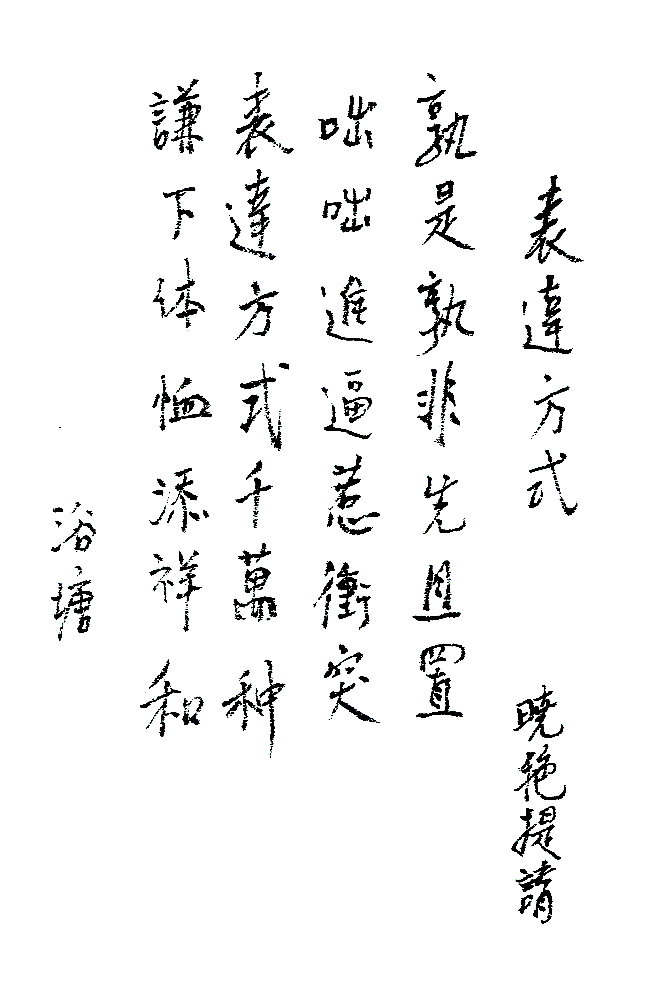 表達方式
曉艳提請
孰是孰非先且置
咄咄進逼惹衝突
表達方式千萬种
謙下体恤添祥和
浴塘